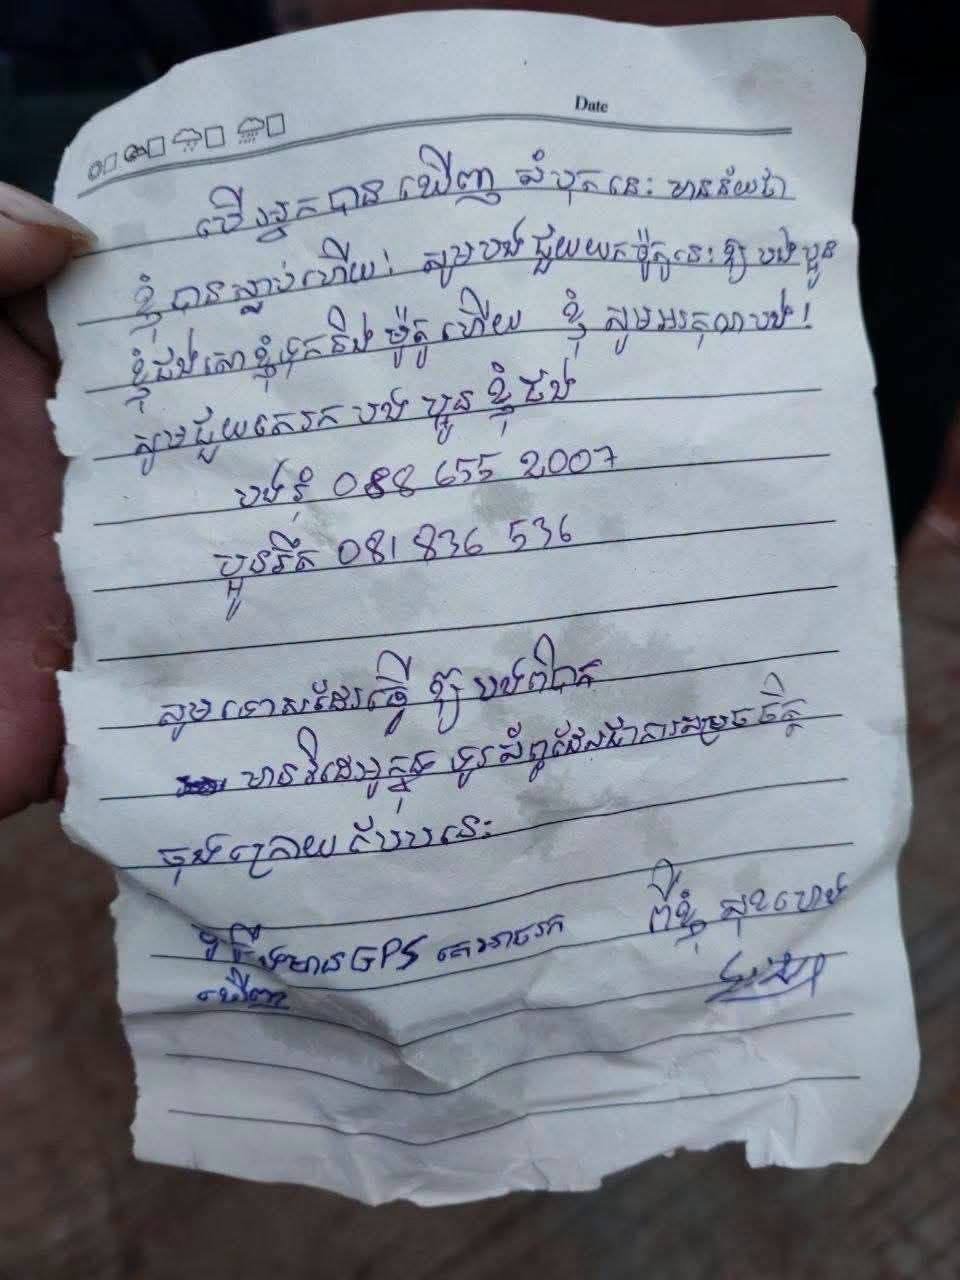 Date
បើអ្នកបានឃើញ សំបុត្រនេះ មានន័យថា
ខ្ញុំបានស្លាប់ហើយ! សូមបងជួយយកម៉ូតូនេះឱ្យ បងប្អូន
ខ្ញុំផង សោខ្ញុំទុកនឹង ម៉ូតូហើយ ខ្ញុំ សូមអរគុណបង!
សូមជួយតេរក បង ប្អូន ខ្ញុំផង
បងរុំ 088 655 2007
ប្អូនរឹត 081 836 536
សូមទោសដែរធ្វើ ឱ្យ បងពិបាក
មានវិដេអូក្នុង ទូរស័ព្ទដែលជាការសម្រេចចិត្ត
ចុងក្រោយ បែបនេះ
មាន GPS គេអាចរក
ឃើញ
ពីខ្ញុំ សុខហេង